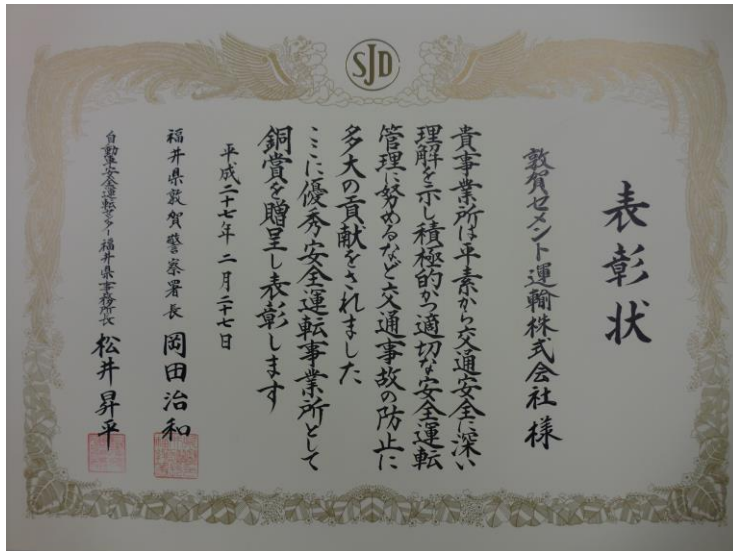 SJD
表彰状
敦賀セメント運輸株式会社様
貴事業所は平素から交通安全に深い
理解を示し積極的かつ適切な安全運転
管理に努めるなど交通事故の防止に
多大の貢献をされました
ここに優秀安全運転事業所として
銅賞を贈呈し表彰します
平成二十七年二月二十七日
福井県敦賀警察署長 岡田治和
自動車安全運転センター福井県事務所長 松井昇平